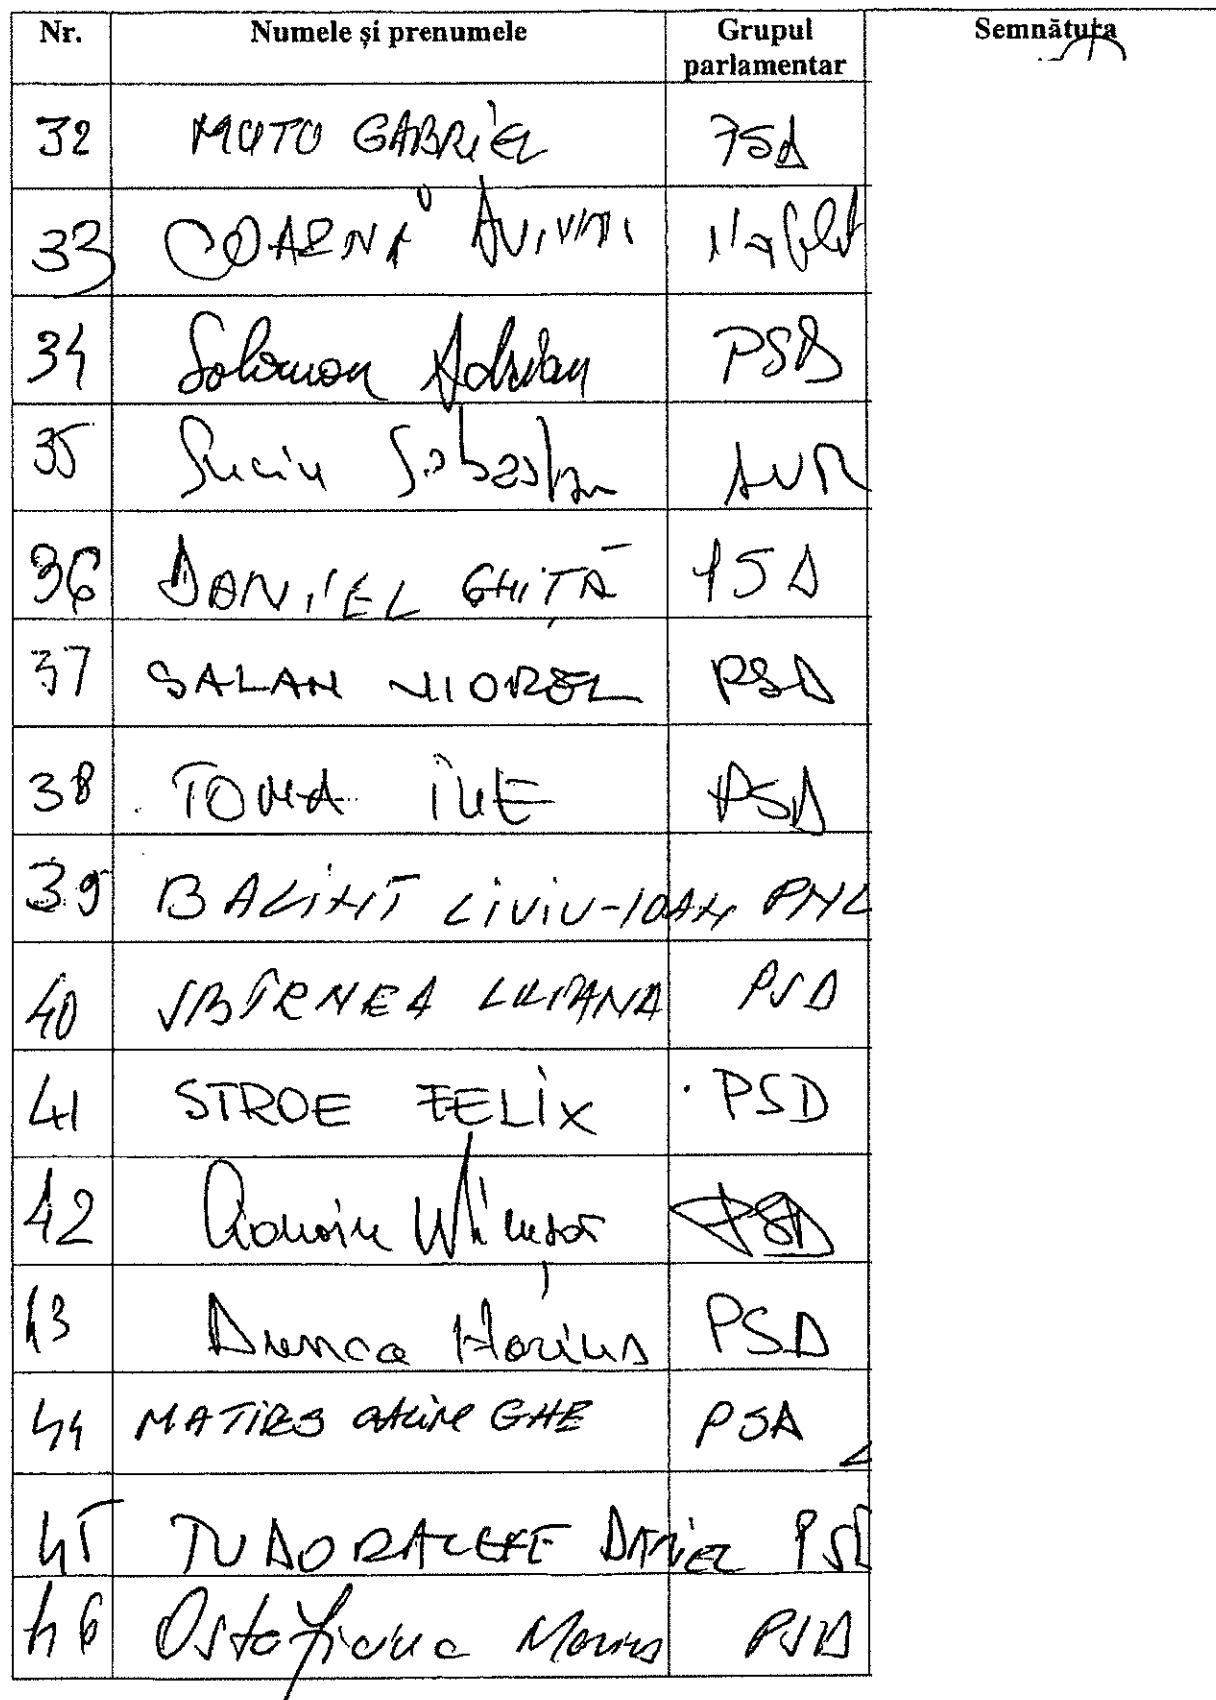 Nr. Numele și prenumele Grupul parlamentar Semnătura
32 MUTU GABRIEL PSD
33 COARNĂ
34 Solomon Adrian PSD
35 Suciu Sebastian AUR
36 DANIEL GHIȚĂ PSD
37 SALAN VIOREL PSD
38 TOMA ILIE PSD
39 BALINT LIVIU-IOAN PNL
40 SBÎRNEA LILIANA PSD
41 STROE FELIX PSD
42 PSD
43 Dunca Marius PSD
44 GHE PSD
45 TUDORACHE DANIEL PSD
46 Ostaficiuc Marius PSD